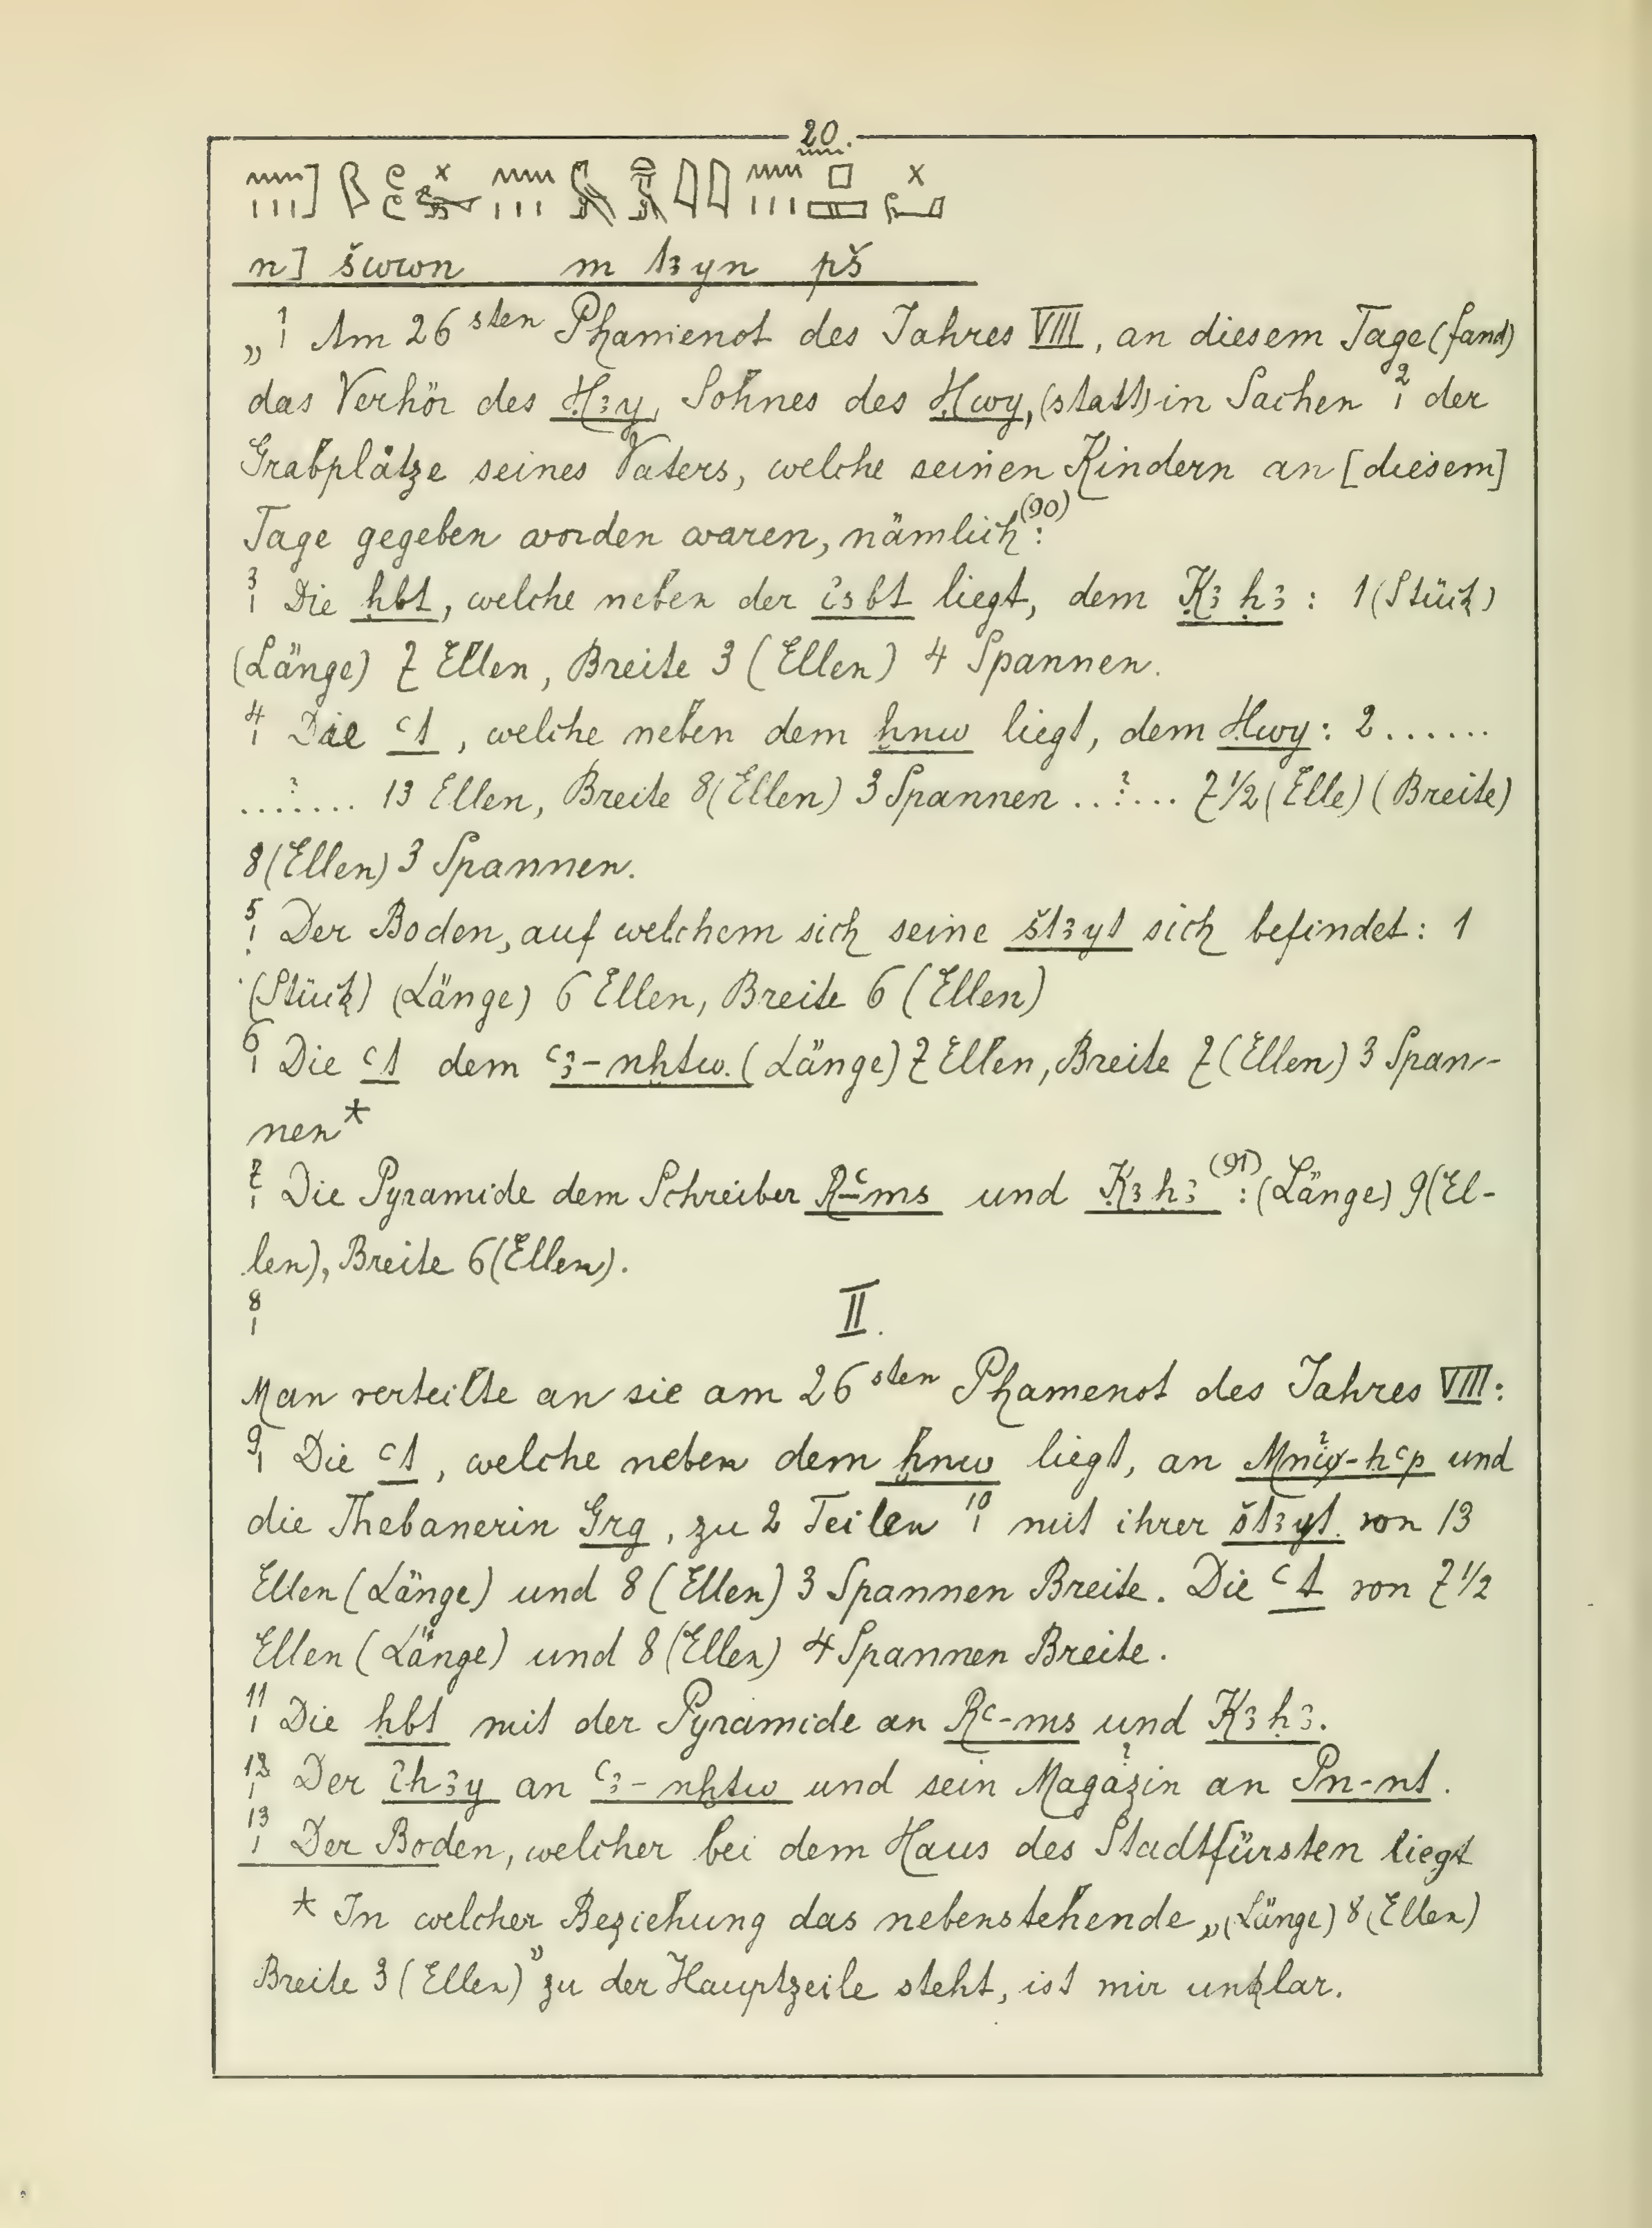 20.
n] šwwn m t3yn pš
„1 Am 26sten Phamenot des Jahres VIII, an diesem Tage (fand)
das Verhör des Ḥ3y, Sohnes des Ḥwy, (statt) in Sachen 2 der
Grabplätze seines Vaters, welche seinen Kindern an [diesem]
Tage gegeben worden waren, nämlich(90):
3 Die ḥbt, welche neben der ỉsbt liegt, dem K3ḥ3: 1 (Stück)
(Länge) 7 Ellen, Breite 3 (Ellen) 4 Spannen.
4 Die ꜥt, welche neben dem ḫnw liegt, dem Ḥwy: 2 ......
...?.... 13 Ellen, Breite 8 (Ellen) 3 Spannen ..?... 7½ (Elle) (Breite)
8 (Ellen) 3 Spannen.
5 Der Boden, auf welchem sich seine št3yt sich befindet: 1
(Stück) (Länge) 6 Ellen, Breite 6 (Ellen)
6 Die ꜥt dem ꜥ3-nḫtw. (Länge) 7 Ellen, Breite 7 (Ellen) 3 Span-
nen*
7 Die Pyramide dem Schreiber Rꜥ-ms und K3ḥ3(91): (Länge) 9 (El-
len), Breite 6 (Ellen).
8 II.
Man verteilte an sie am 26sten Phamenot des Jahres VIII:
9 Die ꜥt, welche neben dem ḫnw liegt, an und
die Thebanerin Grg, zu 2 Teilen 10 mit ihrer št3yt von 13
Ellen (Länge) und 8 (Ellen) 3 Spannen Breite. Die ꜥt von 7½
Ellen (Länge) und 8 (Ellen) 4 Spannen Breite.
11 Die ḥbt mit der Pyramide an Rꜥ-ms und K3ḥ3.
12 Der ỉh3y an ꜥ3-nḫtw und sein Magazin(?) an Pn-nt.
13 Der Boden, welcher bei dem Haus des Stadtfürsten liegt
* In welcher Beziehung das nebenstehende „(Länge) 8 (Ellen)
Breite 3 (Ellen)” zu der Hauptzeile steht, ist mir unklar.